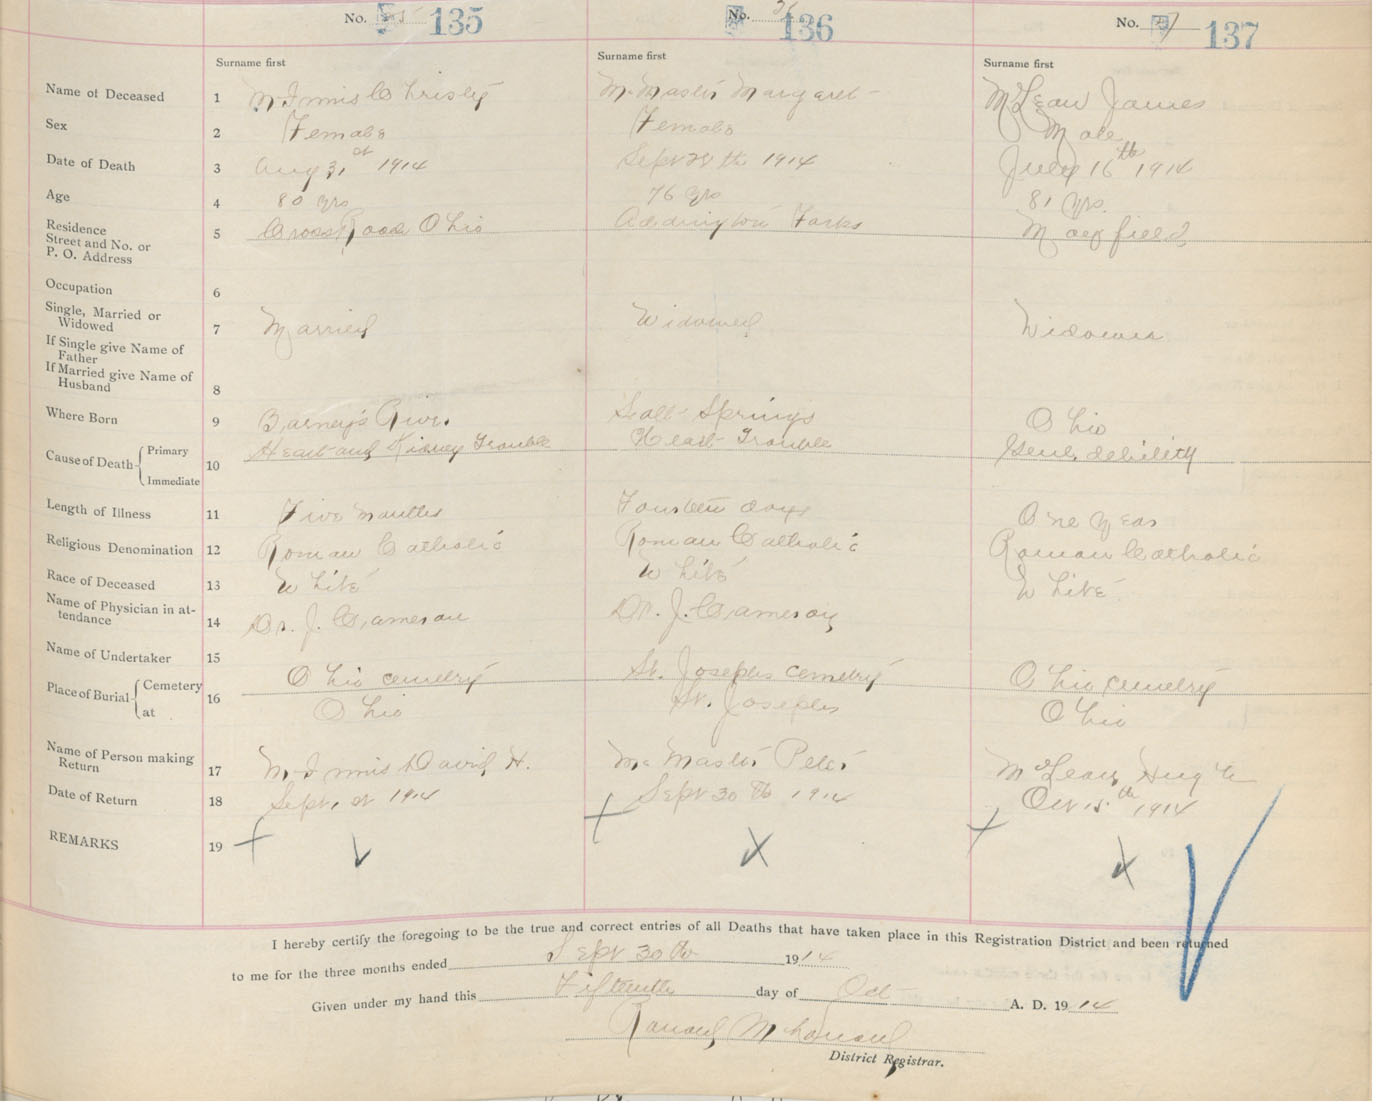 No. 135
No. 36 136
No. 37 137
Surname first
Surname first
Surname first
Name of Deceased 1 McInnis Christy McMaster Margaret McLean James
Sex 2 Female Female Male
Date of Death 3 Aug 31st 1914 Sept 28th 1914 July 16th 1914
Age 4 80 yrs 76 yrs 81 yrs.
Residence
Street and No. or
P. O. Address 5 Cross Road Ohio Addington Forks Maryfield
Occupation 6
Single, Married or
Widowed 7 Married Widowed Widower
If Single give Name of
Father
If Married give Name of
Husband 8
Where Born 9 Barney's River Salt Springs Ohio
Cause of Death Primary 10 Heart and Kidney Trouble Heart Trouble Genl. debility
Immediate
Length of Illness 11 Five months Fourteen days One year
Religious Denomination 12 Roman Catholic Roman Catholic Roman Catholic
Race of Deceased 13 White White White
Name of Physician in at-
tendance 14 Dr. J. Cameron Dr. J. Cameron
Name of Undertaker 15
Place of Burial Cemetery 16 Ohio cemetry St. Josephs cemetry Ohio cemetry
at Ohio St. Josephs Ohio
Name of Person making
Return 17 McInnis David H. McMaster Peter McLean Hugh
Date of Return 18 Sept. 1st 1914 Sept 30th 1914 Oct 15th 1914
REMARKS 19
I hereby certify the foregoing to be the true and correct entries of all Deaths that have taken place in this Registration District and been returned
to me for the three months ended Sept 30th 1914
Given under my hand this Fifteenth day of Oct A. D. 1914
Ronald
District Registrar.